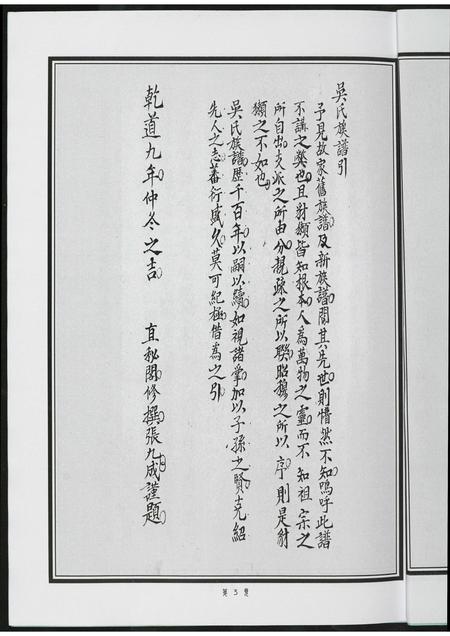 吳氏族譜引
予見故家舊族譜及新族譜間其先世則懵然不知嗚呼此譜
不講之獘也且豺獺皆知根本人為萬物之靈而不知祖宗之
所自出支派之所由分親疎之所以聯昭穆之所以序則是豺
獺之不如也
吳氏族譜歷千百年以嗣以續如視諸掌加以子孫之賢克紹
先人之志蕃衍盛久莫可紀極僣為之引
乾道九年仲冬之吉 直秘閣修撰張九成謹題
第3隻